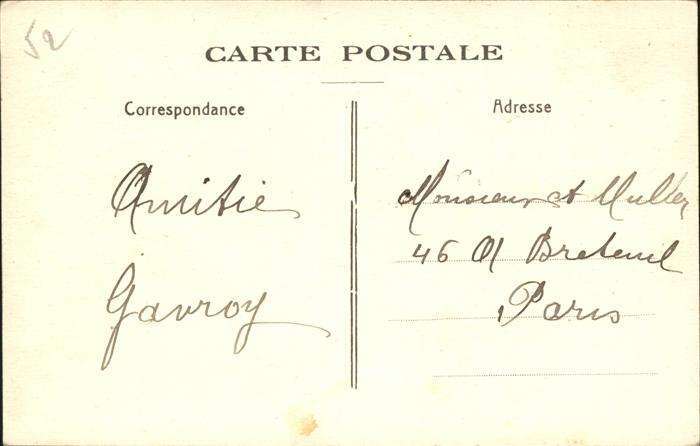 52
CARTE POSTALE
Correspondance
Adresse
Amitié
Gavroy
Monsieur A Muller
46 Breteuil
Paris